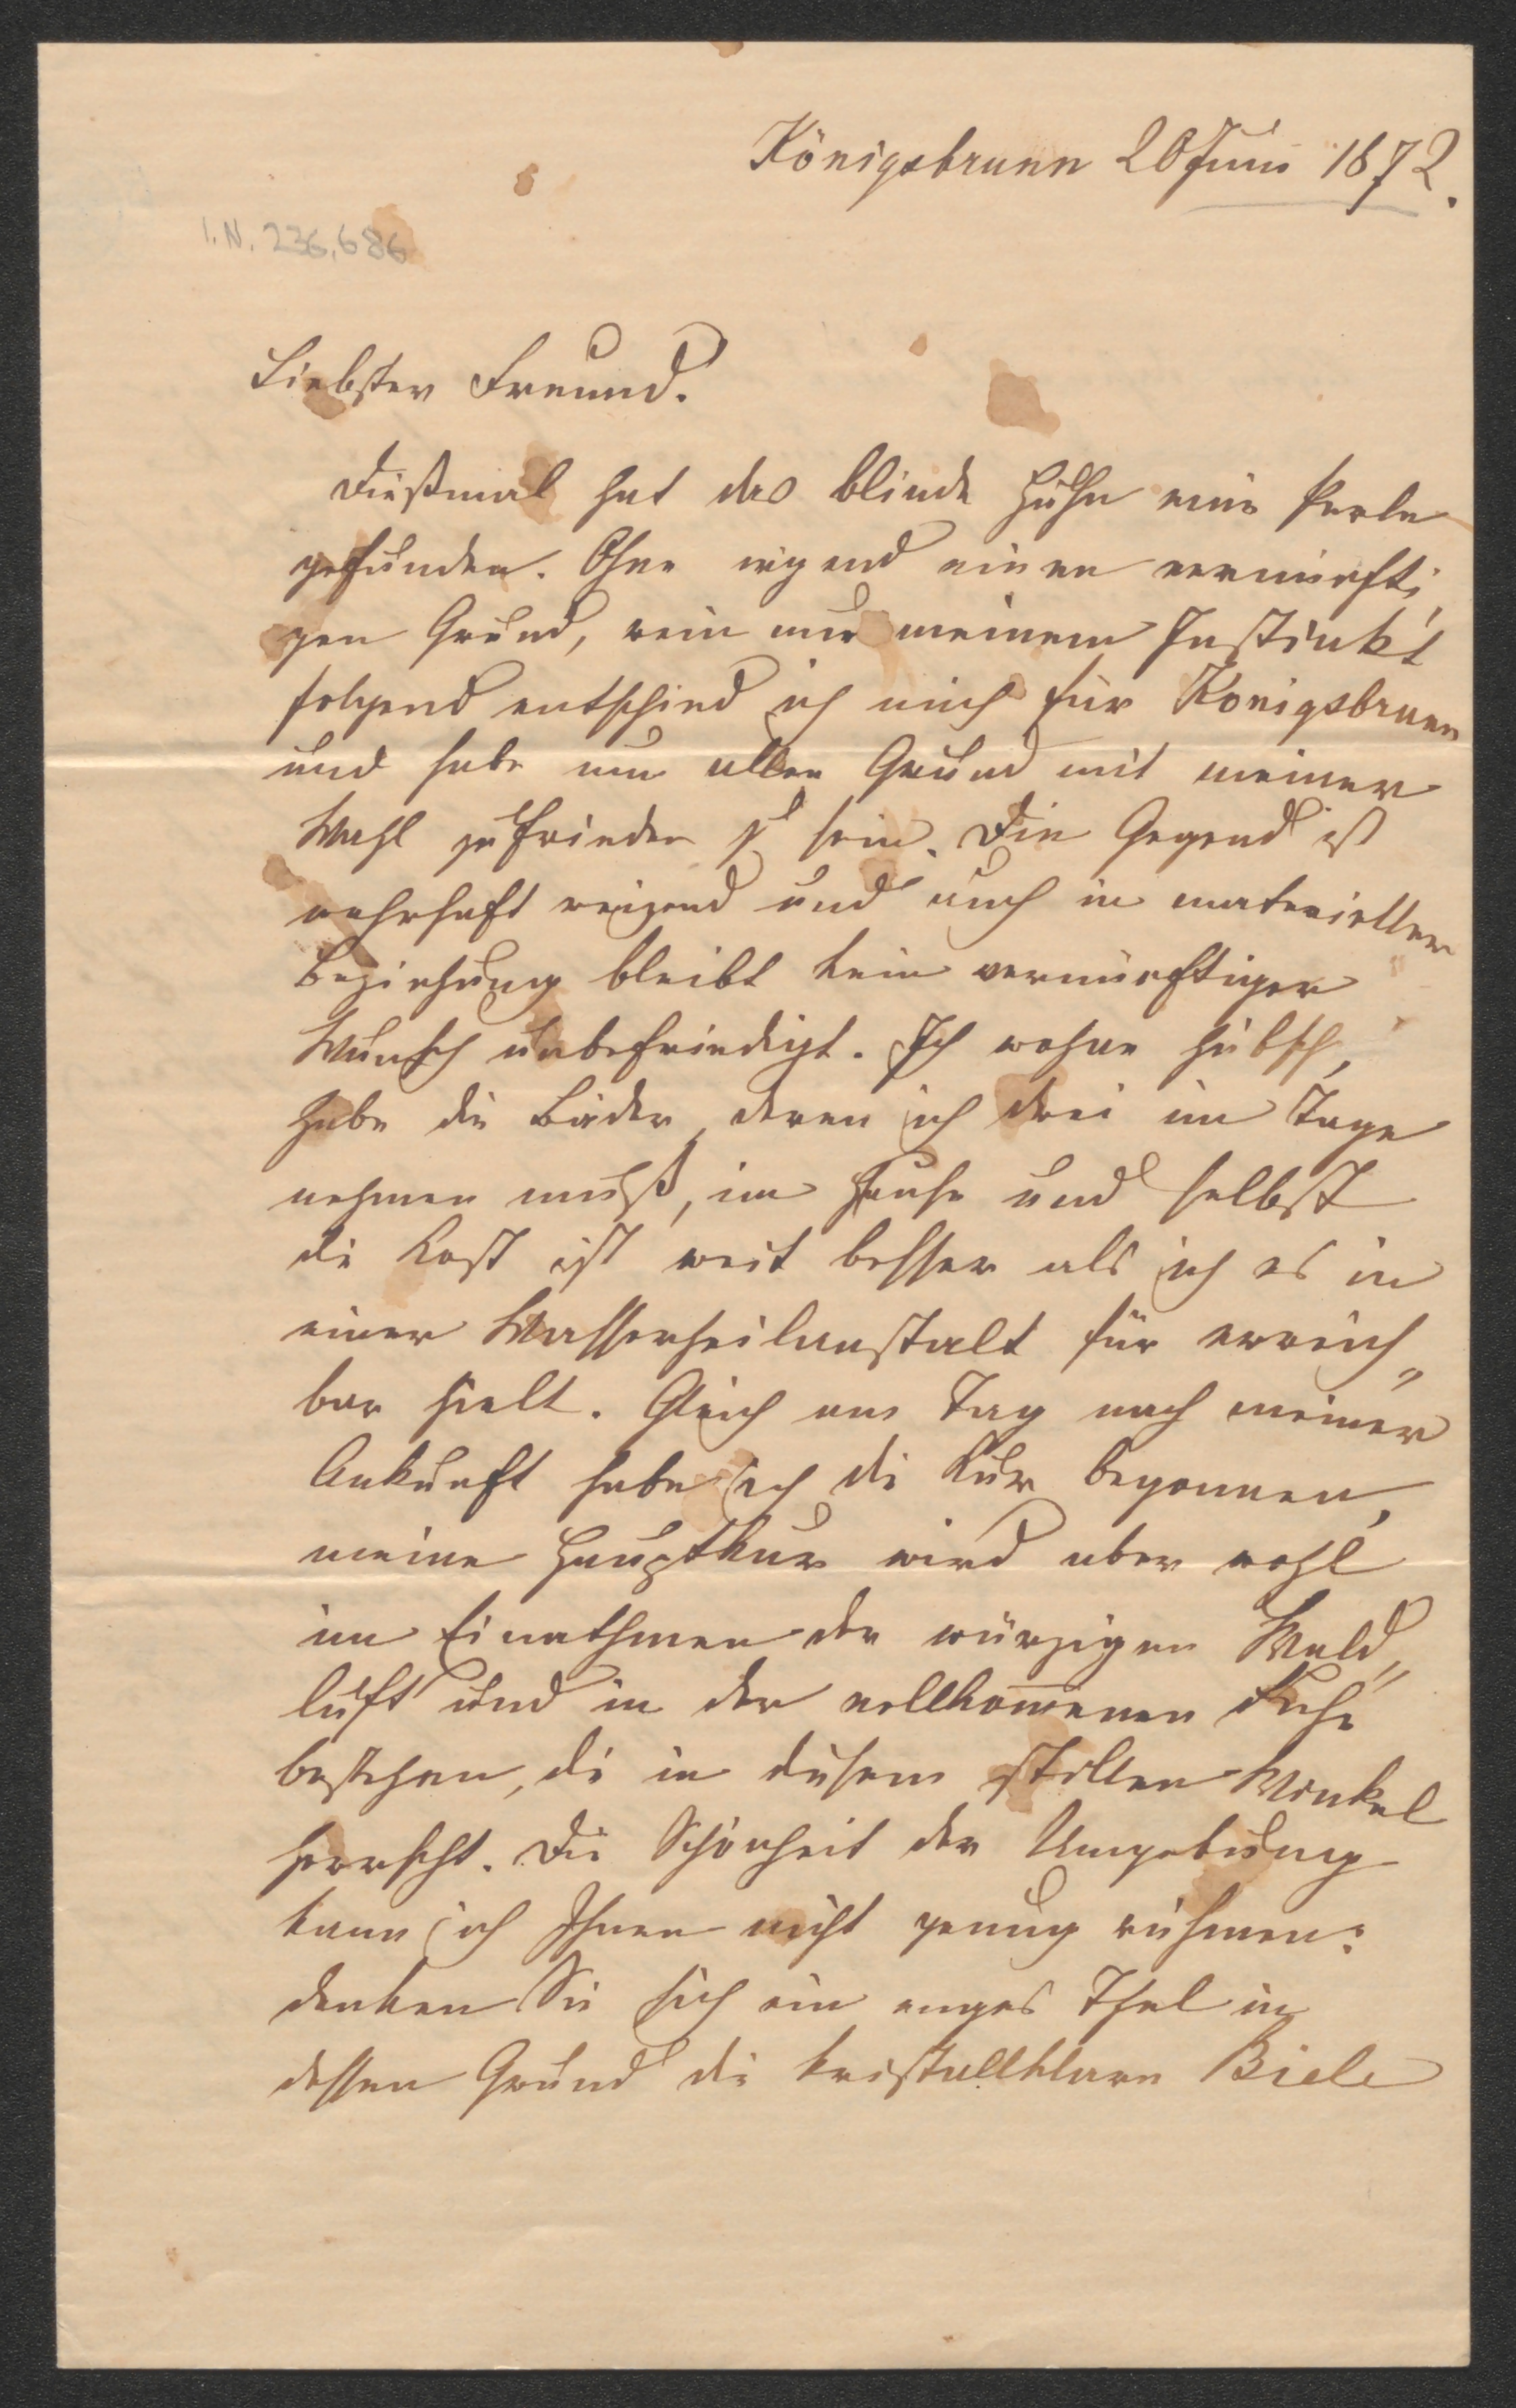 Königsbrunn 20 Juni 1872.
I.N. 236.686
Liebster Freund.
Dießmal hat das blinde Huhn eine Perle
gefunden. Ohne irgend einen vernünfti¬
gen Grund, rein nur meinem Instinkt
folgend entschied ich mich für Königsbrunn
und habe nun allen Grund mit meiner
Wahl zufrieden zu sein. Die Gegend ist
wahrhaft reizend und auch in materieller
Beziehung bleibt kein vernünftiger
Wunsch unbefriedigt. Ich wohne hübsch,
habe die Bäder, deren ich drei im Tage
nehmen muß, im Hause und selbst
die Kost ist weit besser als ich es in
einer Wasserheilanstalt für erreich„
bar hielt. Gleich am Tag nach meiner
Ankunft habe ich die Kur begonnen,
meine Hauptkur wird aber wohl
im Einathmen der würzigen Wald„
luft und in der vollkommenen Ruhe
bestehen, die in diesem stillen Winkel
herrscht. Die Schönheit der Umgebung
kann ich Ihnen nicht genug rühmen:
denken Sie sich ein enges Thal in
dessen Grund die kristallklare Biele